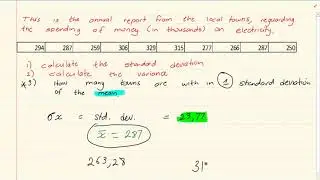 This is the annual report from the local towns, regarding
the spending of money (in thousands) on electricity.
294 287 259 306 331 315 277 266 287 250
1) calculate the standard deviation
2) calculate the variance
* 3) How many towns are with in 1 standard deviation
of the mean
σx = std. dev. = 23,72
x̄ = 287
263,28 31